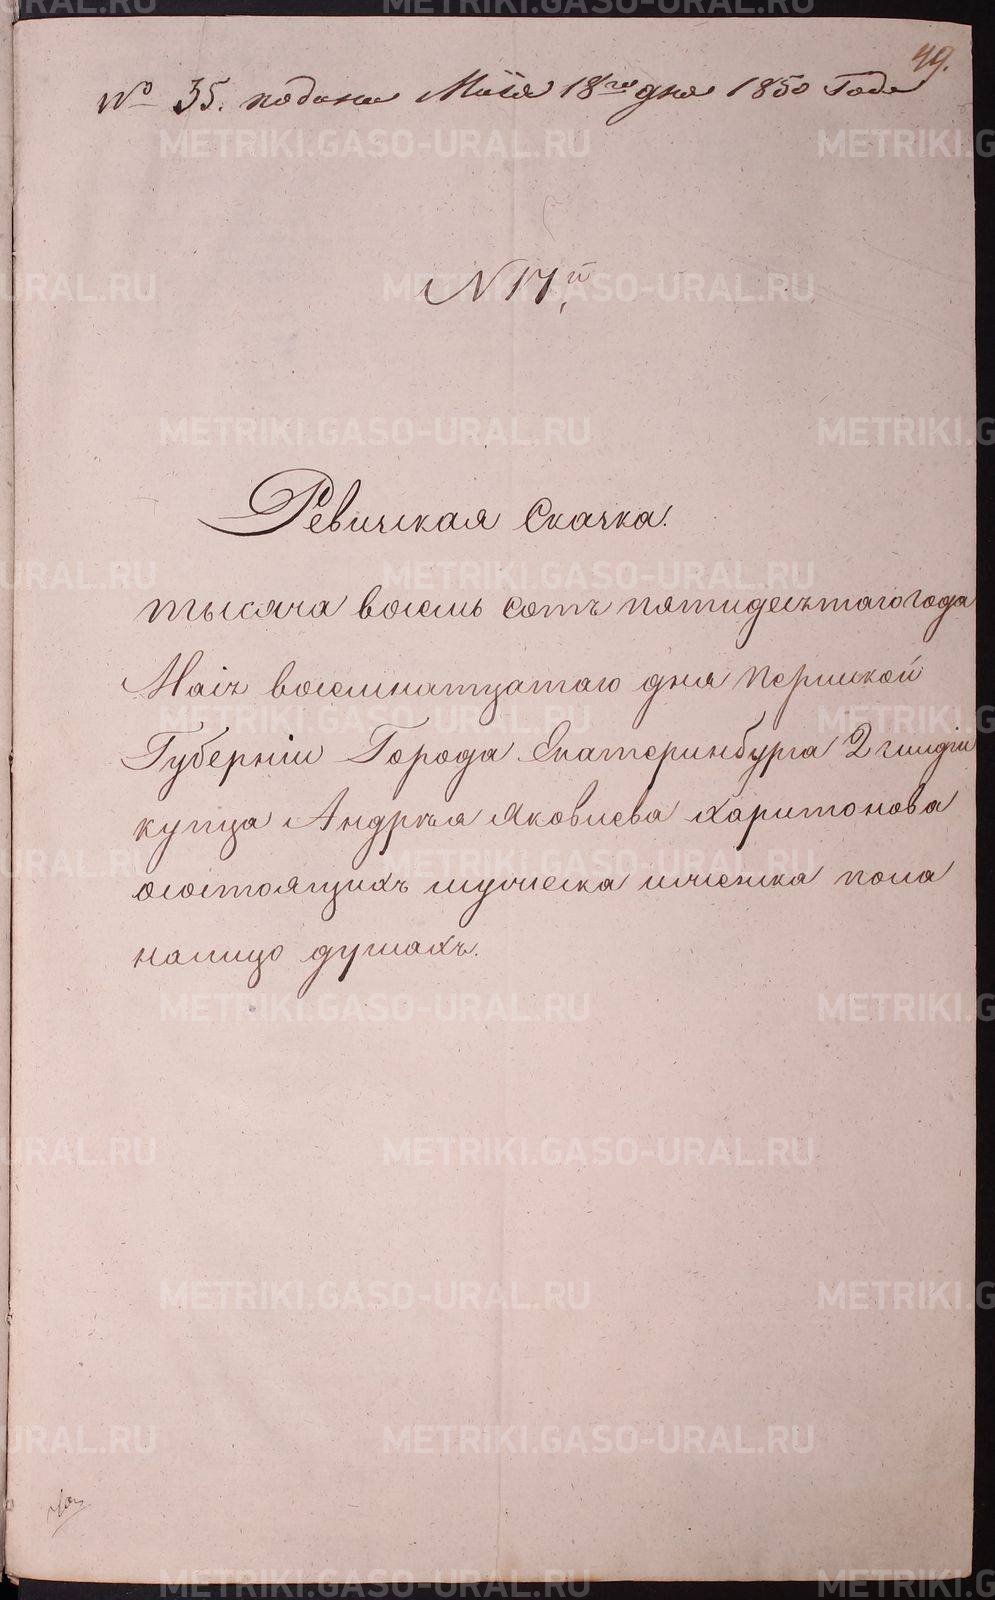 49.
№ 35. подана Маія 18го дня 1850 Года
N 17й
Ревичская Скачка.
тысяча восемь сотъ пятидесътаго года
Маія восемнатцатаго дня Пермской
Губерніи Города Екатеринбурга 2 гилдіи
купца Андрѣя Яковлева Харитонова
осостоящихъ мужеска иженска пола
налицо душахъ.
METRIKI.GASO-URAL.RU